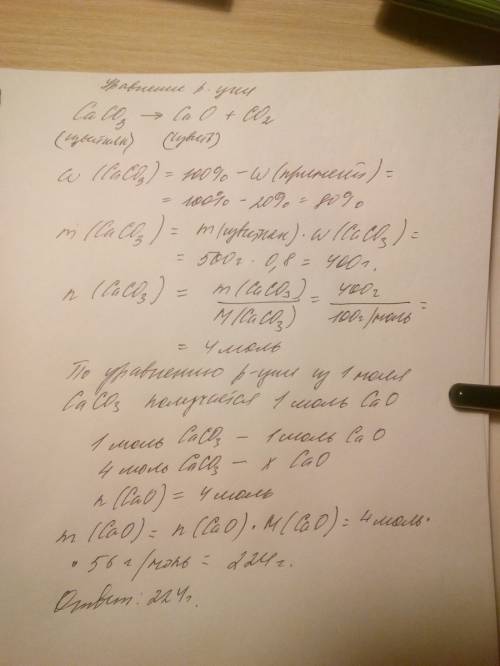 Уравнение р-ции
CaCO₃ → CaO + CO₂
(известняк) (известь)
w (CaCO₃) = 100% - w (примесей) =
= 100% - 20% = 80%
m (CaCO₃) = m(известняк) · w (CaCO₃) =
= 500г · 0,8 = 400г.
n (CaCO₃) = m(CaCO₃)/M(CaCO₃) = 400г/100г/моль =
= 4 моль
По уравнению р-ции из 1 моля
CaCO₃ получается 1 моль CaO
1 моль CaCO₃ - 1 моль CaO
4 моль CaCO₃ - x CaO
n (CaO) = 4 моль
m (CaO) = n (CaO) · M (CaO) = 4 моль ·
· 56 г/моль = 224г.
Ответ: 224г.